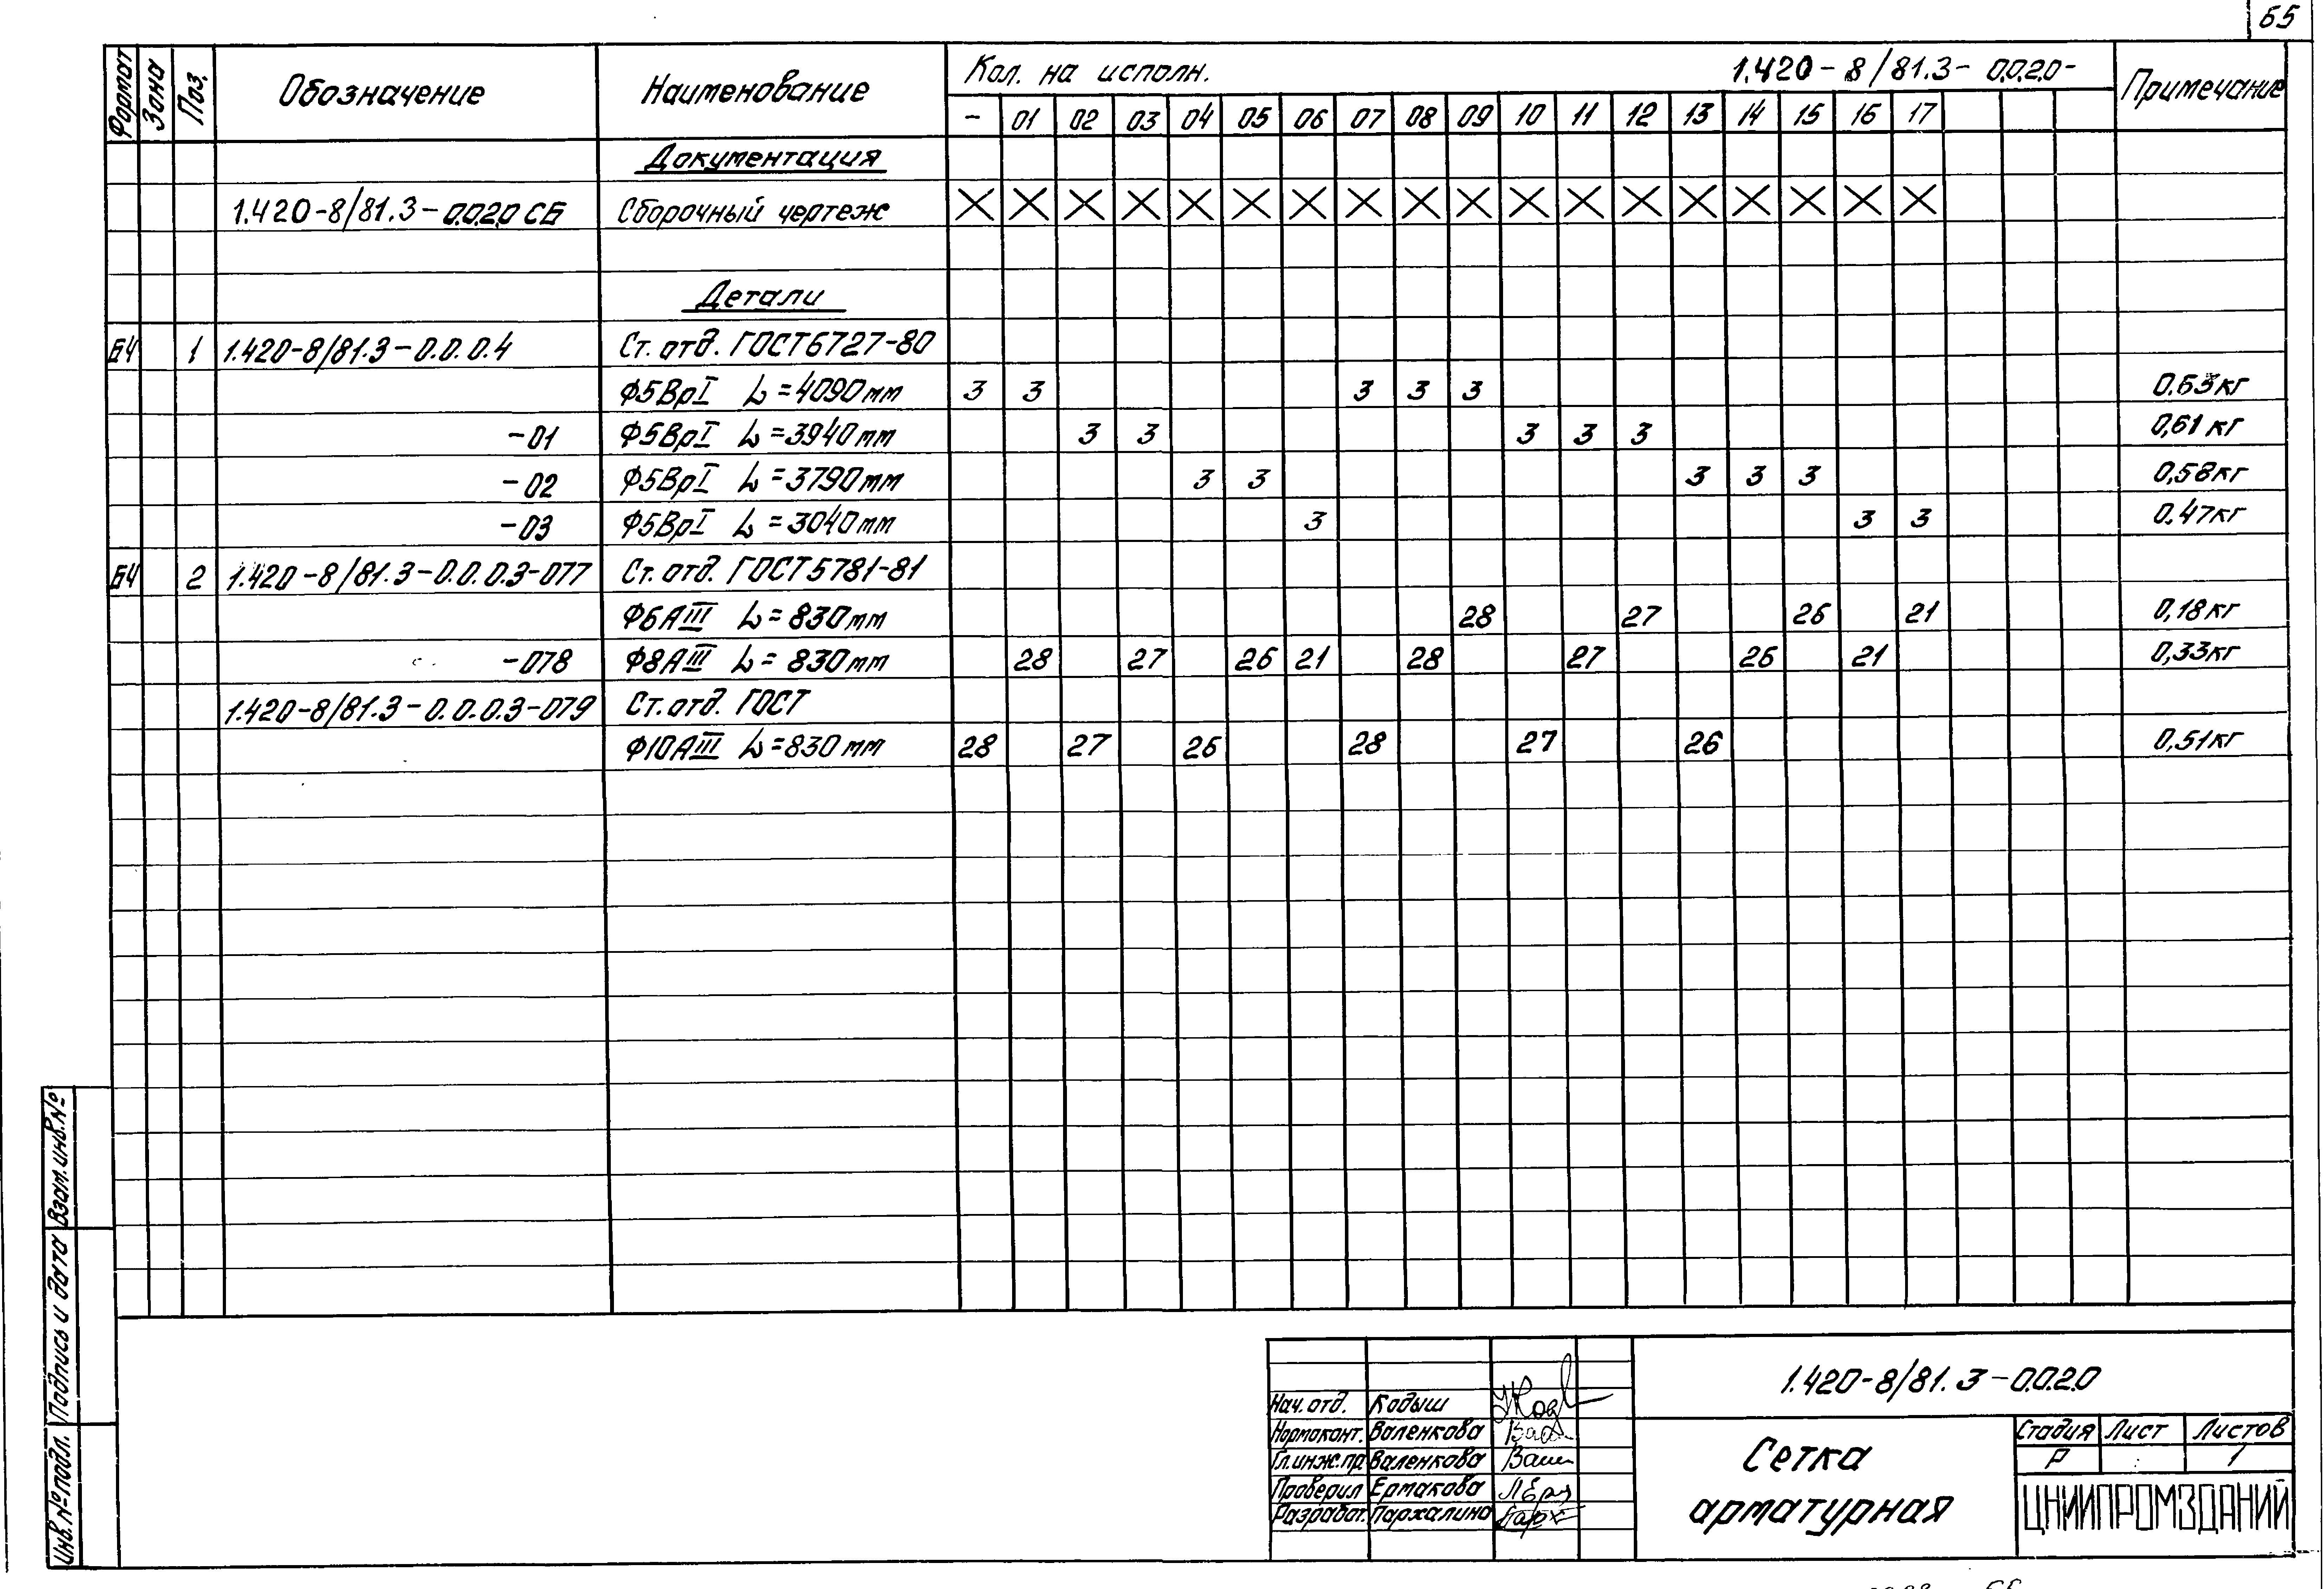 65
Формат Зона Поз. Обозначение Наименование Кол. на исполн. 1.420-8/81.3-0.0.2.0- Примечание
- 01 02 03 04 05 06 07 08 09 10 11 12 13 14 15 16 17
Документация
1.420-8/81.3-0.0.2.0 СБ Сборочный чертеж X X X X X X X X X X X X X X X X X X
Детали
БЧ 1 1.420-8/81.3-0.0.0.4 Ст. отд. ГОСТ 6727-80
Ф5ВрI L=4090мм 3 3 3 3 3 0.63кг
-01 Ф5ВрI L=3940мм 3 3 3 3 3 0,61 кг
-02 Ф5ВрI L=3790мм 3 3 3 3 3 0,58кг
-03 Ф5ВрI L=3040мм 3 3 3 0.47кг
БЧ 2 1.420-8/81.3-0.0.0.3-077 Ст. отд. ГОСТ 5781-81
Ф6АIII L=830мм 28 27 26 21 0,18кг
-078 Ф8АIII L=830мм 28 27 26 21 28 27 26 21 0,33кг
1.420-8/81.3-0.0.0.3-079 Ст. отд. ГОСТ
Ф10АIII L=830мм 28 27 26 28 27 26 0,51кг
Взам.инв.№
Подпись и дата
Инв.№подл.
1.420-8/81.3-0.0.2.0
Нач.отд. Кодыш
Нормоконт. Валенкова
Гл.инж.пр Валенкова
Проверил Ермакова
Разработ. Пархалина
Сетка
арматурная
Стадия Лист Листов
Р 1
ЦНИИПРОМЗДАНИЙ